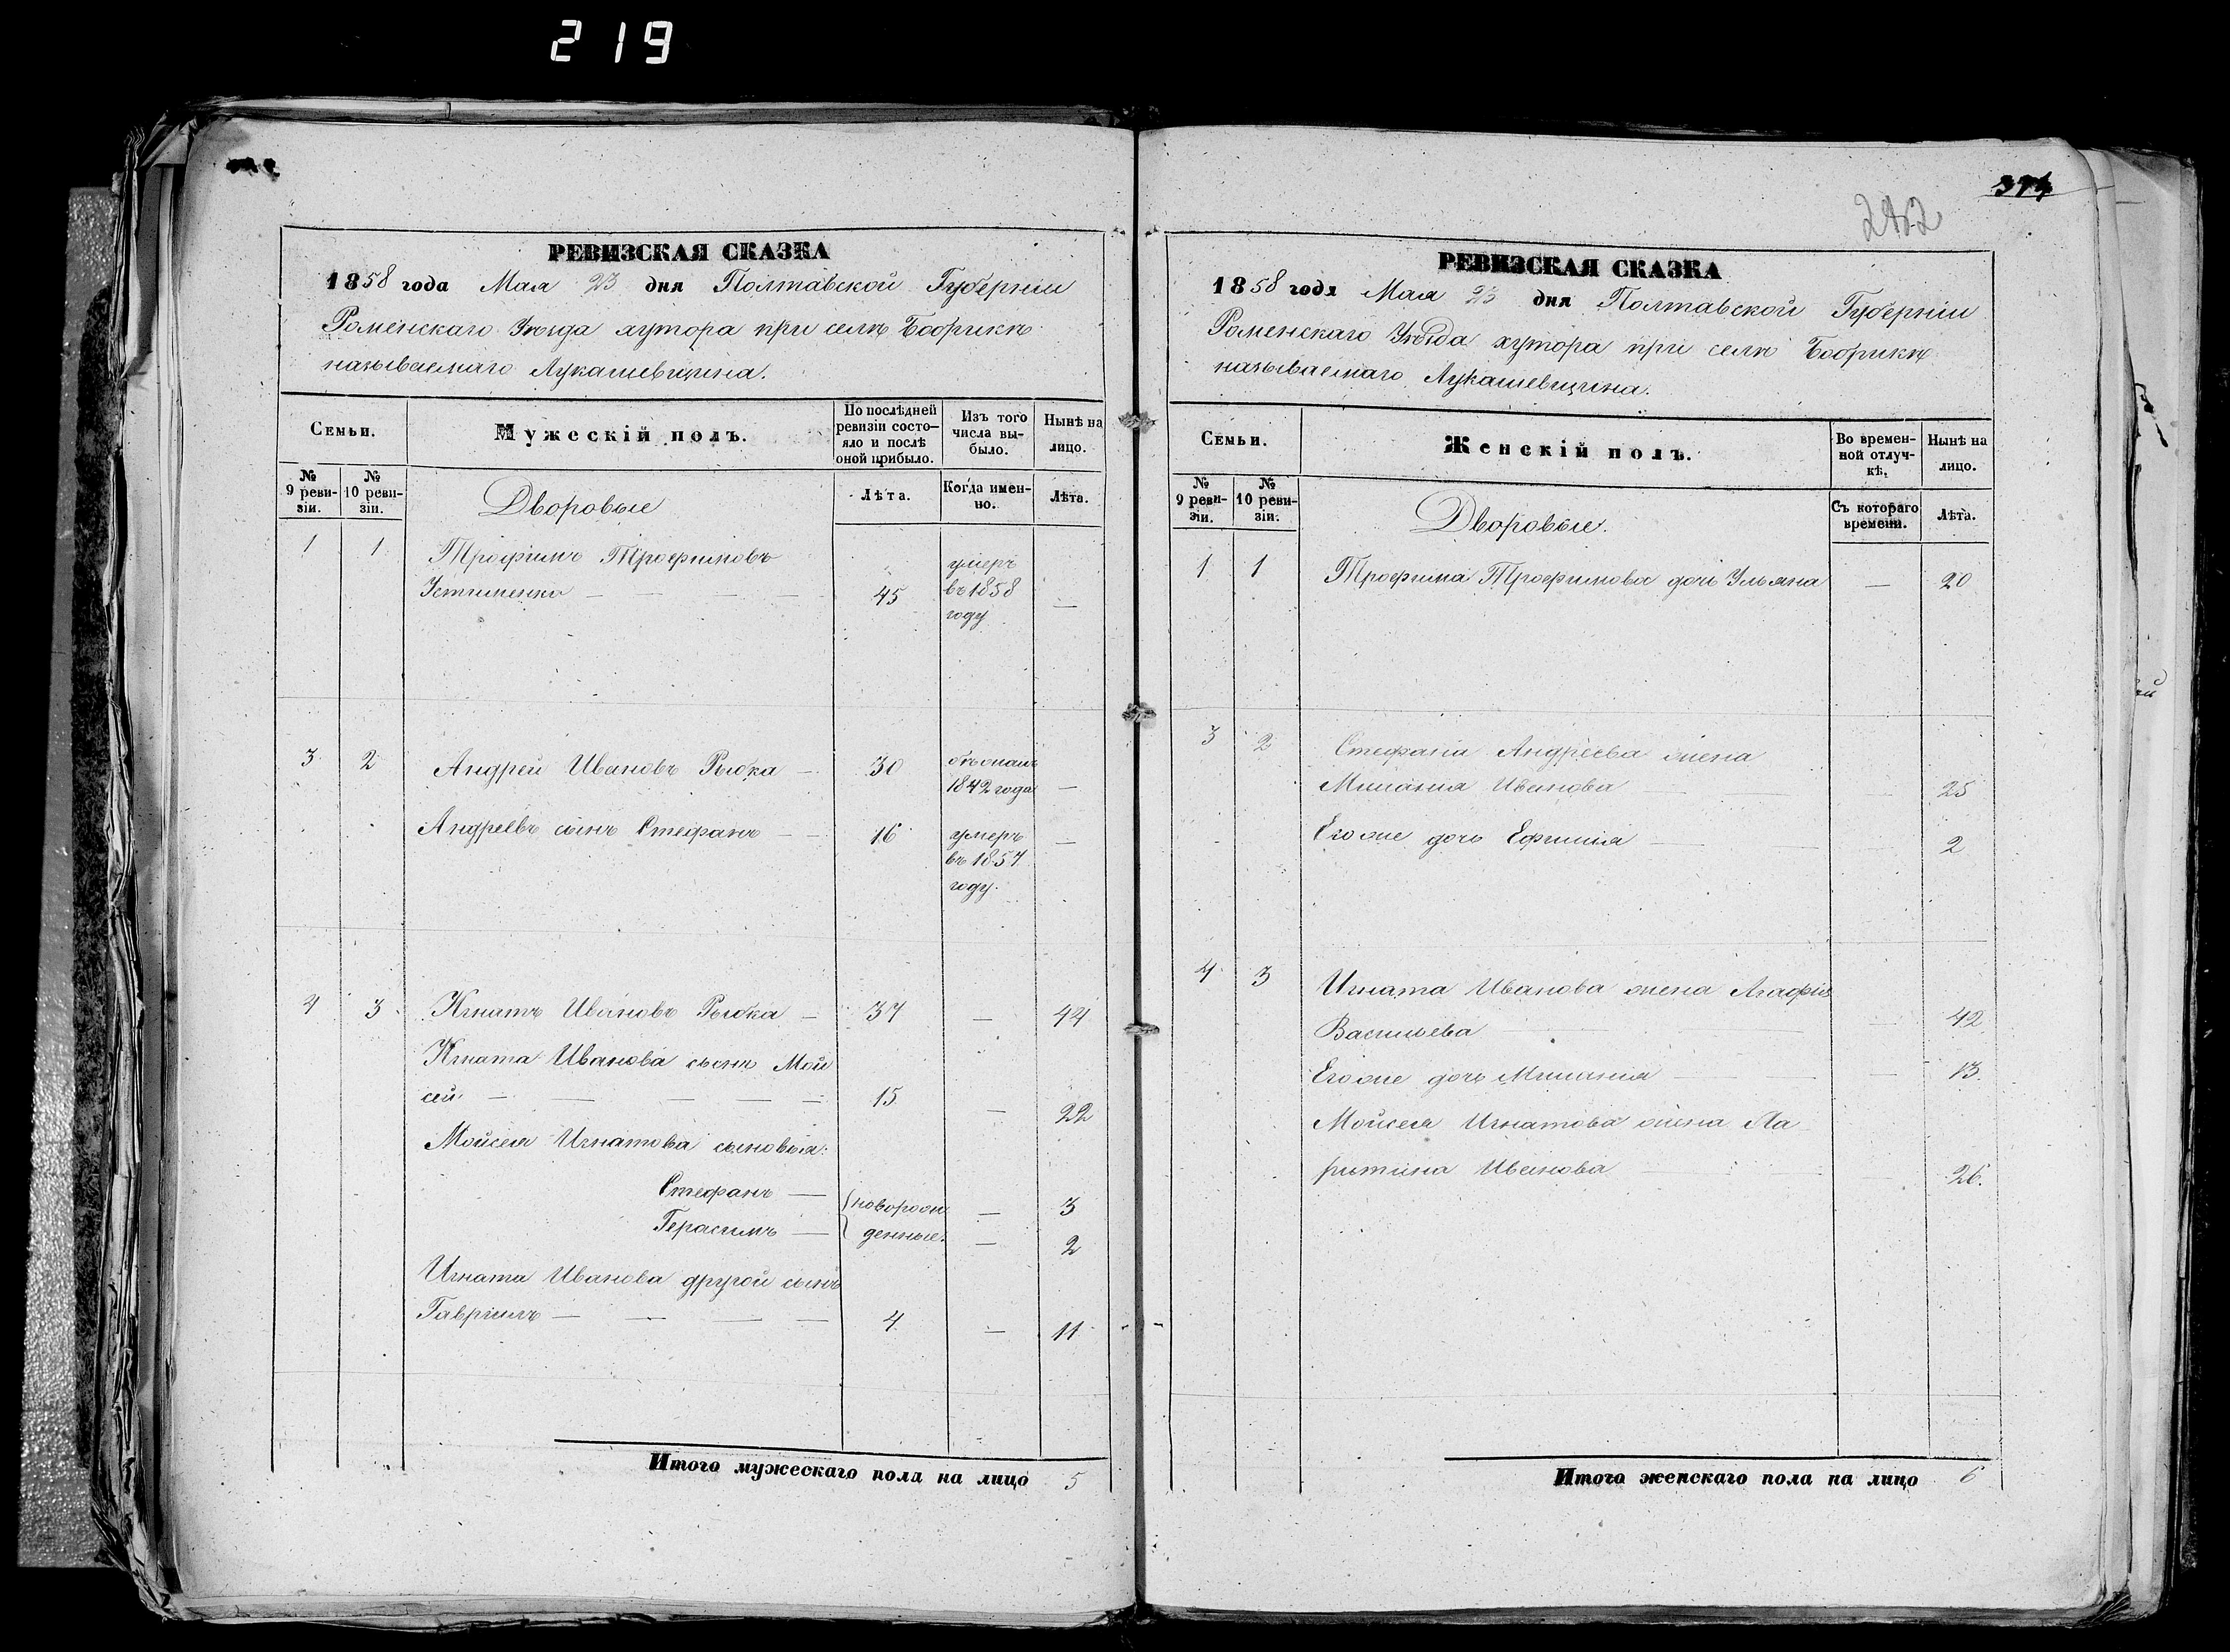 219
РЕВИЗСКАЯ СКАЗКА
1858 года Мая 23 дня Полтавской Губерніи
Роменскаго Уѣзда хутора при селѣ Бобрикѣ
называемаго Лукашевщина.
Семьи.
Мужескій полъ.
По послѣдней ревизіи состояло и послѣ оной прибыло.
Изъ того числа выбыло.
Нынѣ на лицо.
№ 9 ревизіи.
№ 10 ревизіи.
Лѣта.
Когда именно.
Лѣта.
Дворовые
1 1 Трофимъ Трофимовъ
Устименко — 45 умеръ въ 1858 году —
3 2 Андрей Ивановъ Рыбка — 30 1842 года —
Андреевъ сынъ Стефанъ — 16 умеръ въ 1857 году. —
4 3 Игнатъ Ивановъ Рыбка — 37 — 44
Игната Иванова сынъ Мой
сей — 15 — 22
Мойсея Игнатова сыновья:
Стефанъ — новорож — 3
Герасимъ — денные. — 2
Игната Иванова другой сынъ
Гавріилъ — 4 — 11
Итого мужескаго пола на лицо 5
374
242
РЕВИЗСКАЯ СКАЗКА
1858 года Мая 23 дня Полтавской Губерніи
Роменскаго Уѣзда хутора при селѣ Бобрикѣ
называемаго Лукашевщина.
Семьи.
Женскій полъ.
Во временной отлучкѣ.
Нынѣ на лицо.
№ 9 ревизіи.
№ 10 ревизіи.
Съ котораго времени.
Лѣта.
Дворовые.
1 1 Трофима Трофимова дочь Ульяна — 20
3 2 Стефана Андреева жена
Миланія Иванова — 25
Его же дочь Ефимія — 2
4 3 Игната Иванова жена Агафія
Васильева — 42
Его же дочь Миланія — 13.
Мойсея Игнатова жена Ха
ритина Иванова — 26.
Итого женскаго пола на лицо 6